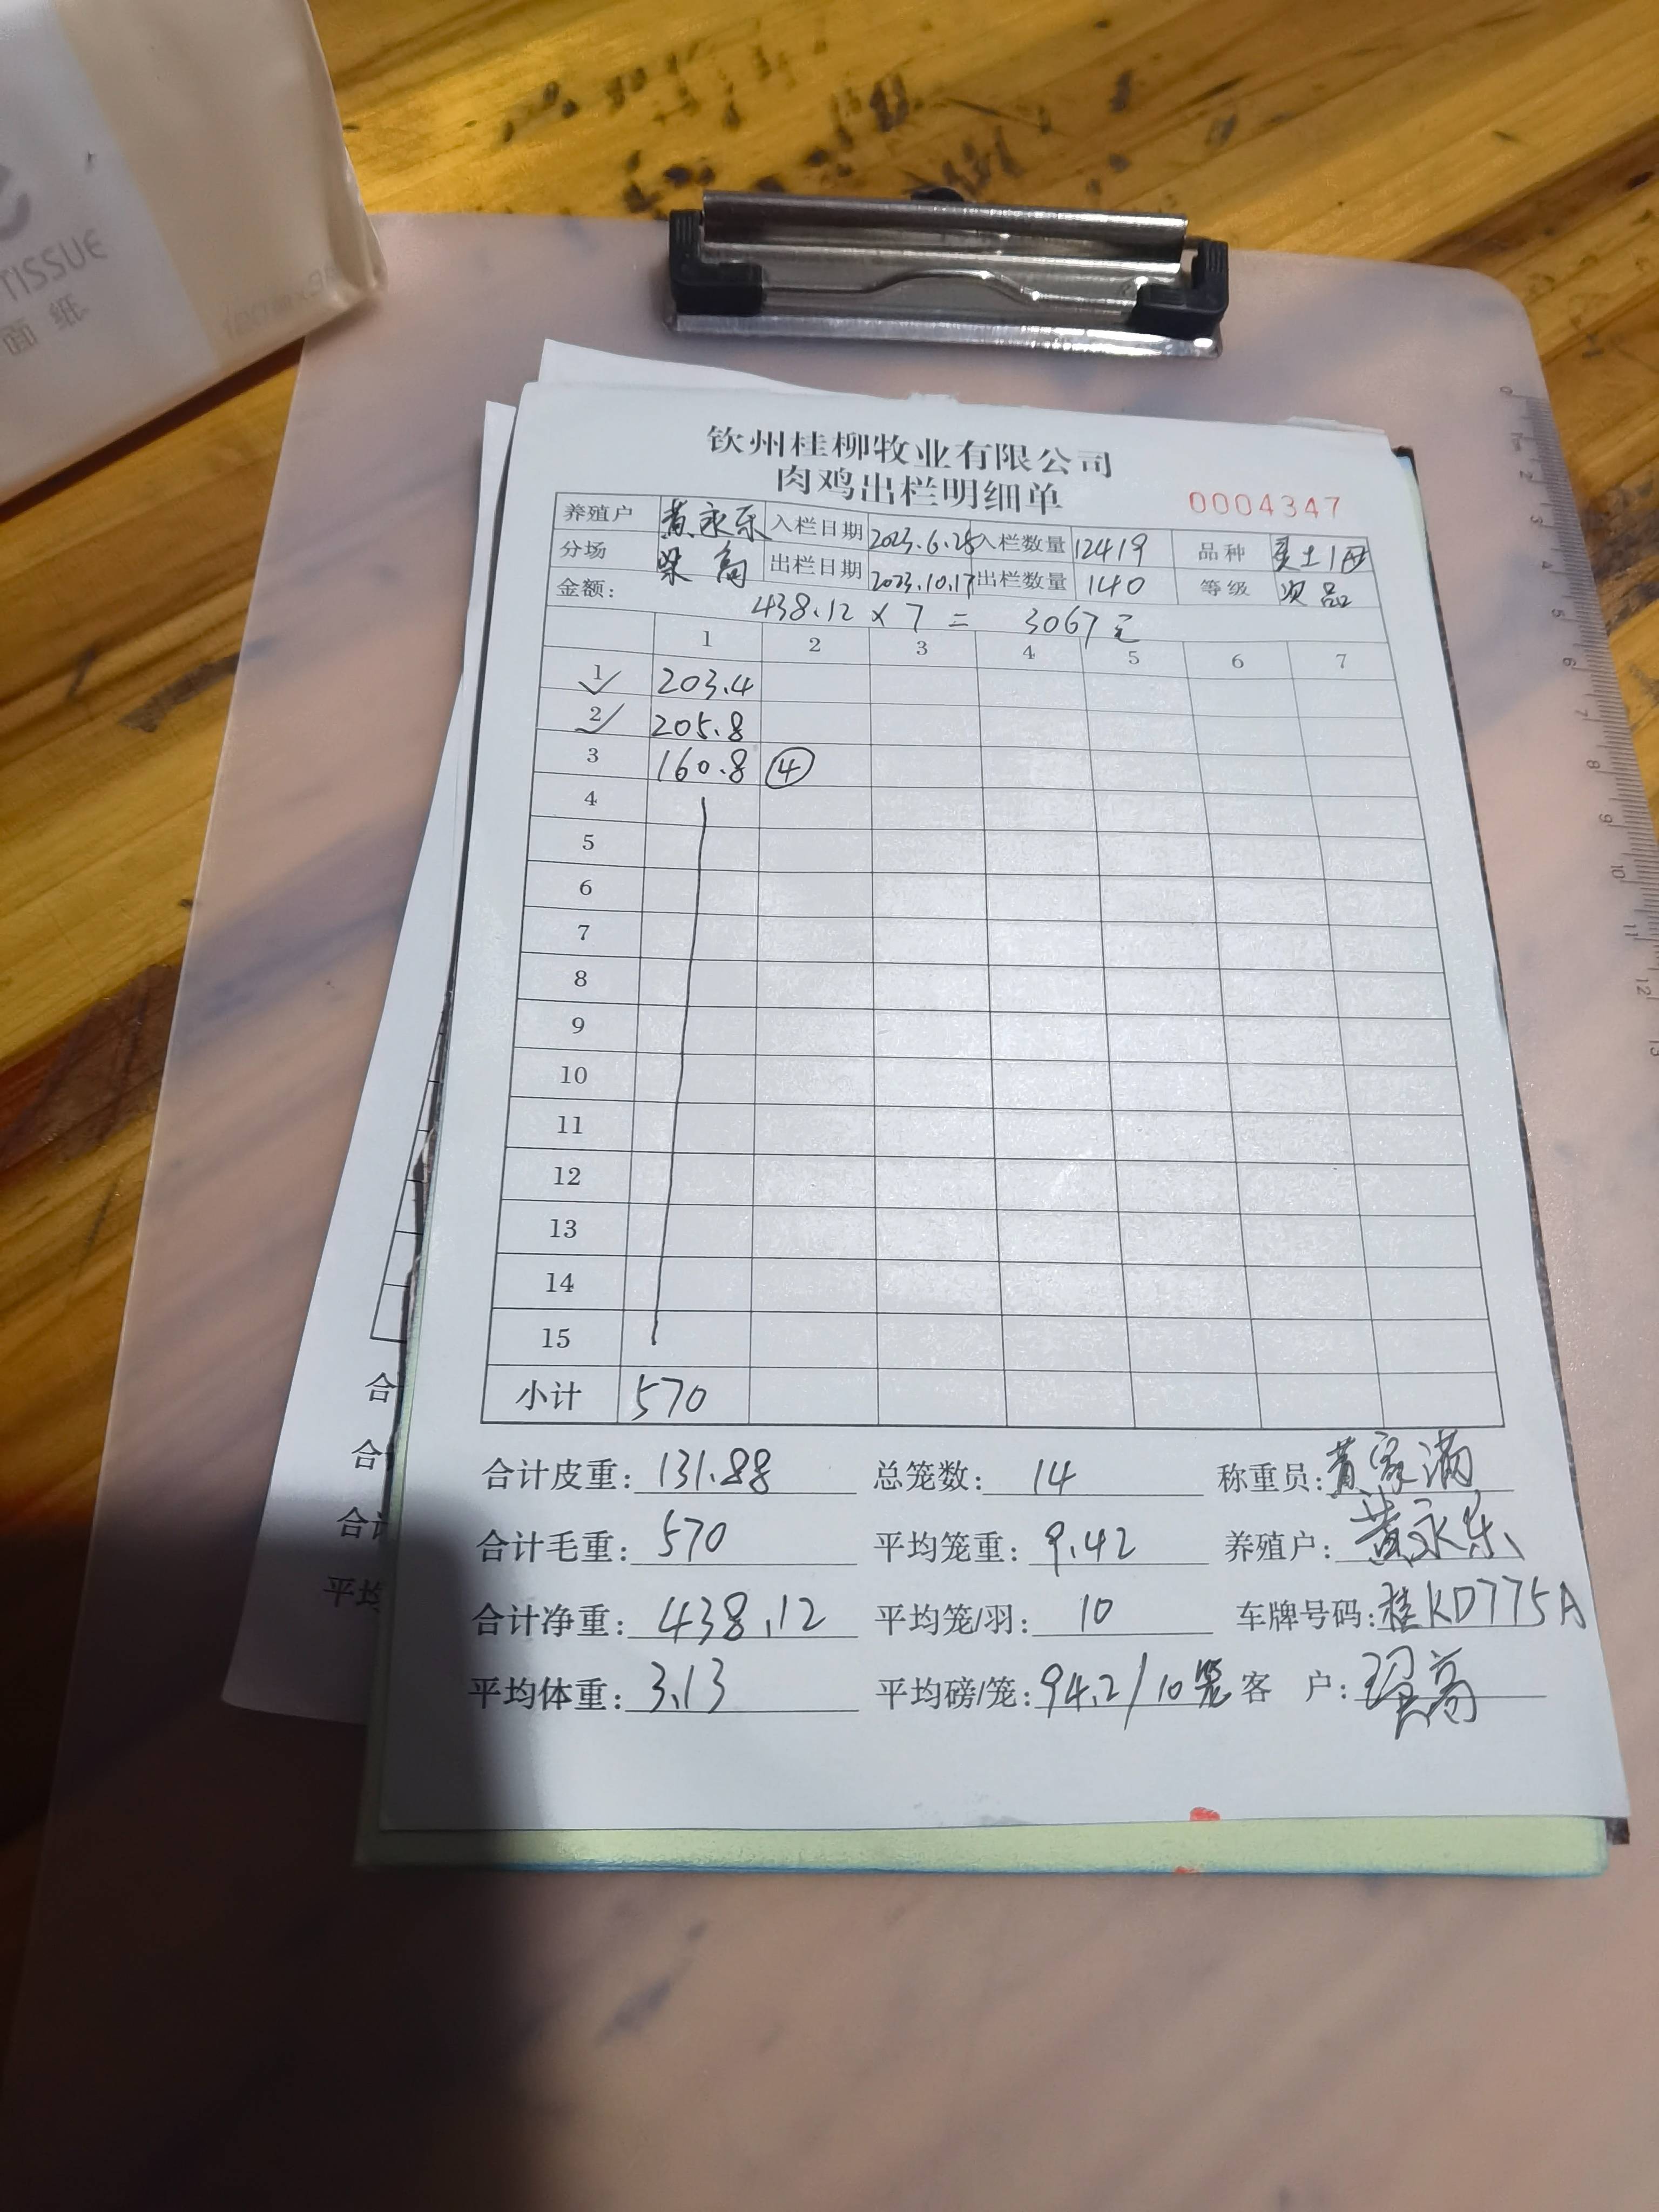 TISSUE
面纸
钦州桂柳牧业有限公司
肉鸡出栏明细单
0004347
养殖户 黄永乐 入栏日期 2023.6.28 入栏数量 12419 品种
分场 高 出栏日期 2023.10.17 出栏数量 140 等级 次品
金额: 438.12 × 7 = 3067元
1 2 3 4 5 6 7
1 203.4
2 205.8
3 160.8 ④
4
5
6
7
8
9
10
11
12
13
14
15
小计 570
合计皮重: 131.88 总笼数: 14 称重员: 黄家满
合计毛重: 570 平均笼重: 9.42 养殖户: 黄永乐
合计净重: 438.12 平均笼/羽: 10 车牌号码: 桂KD775A
平均体重: 3.13 平均磅/笼: 94.2/10笼 客户:
合
合
合计
平均
0 1 2 3 4 5 6 7 8 9 10 11 12 13